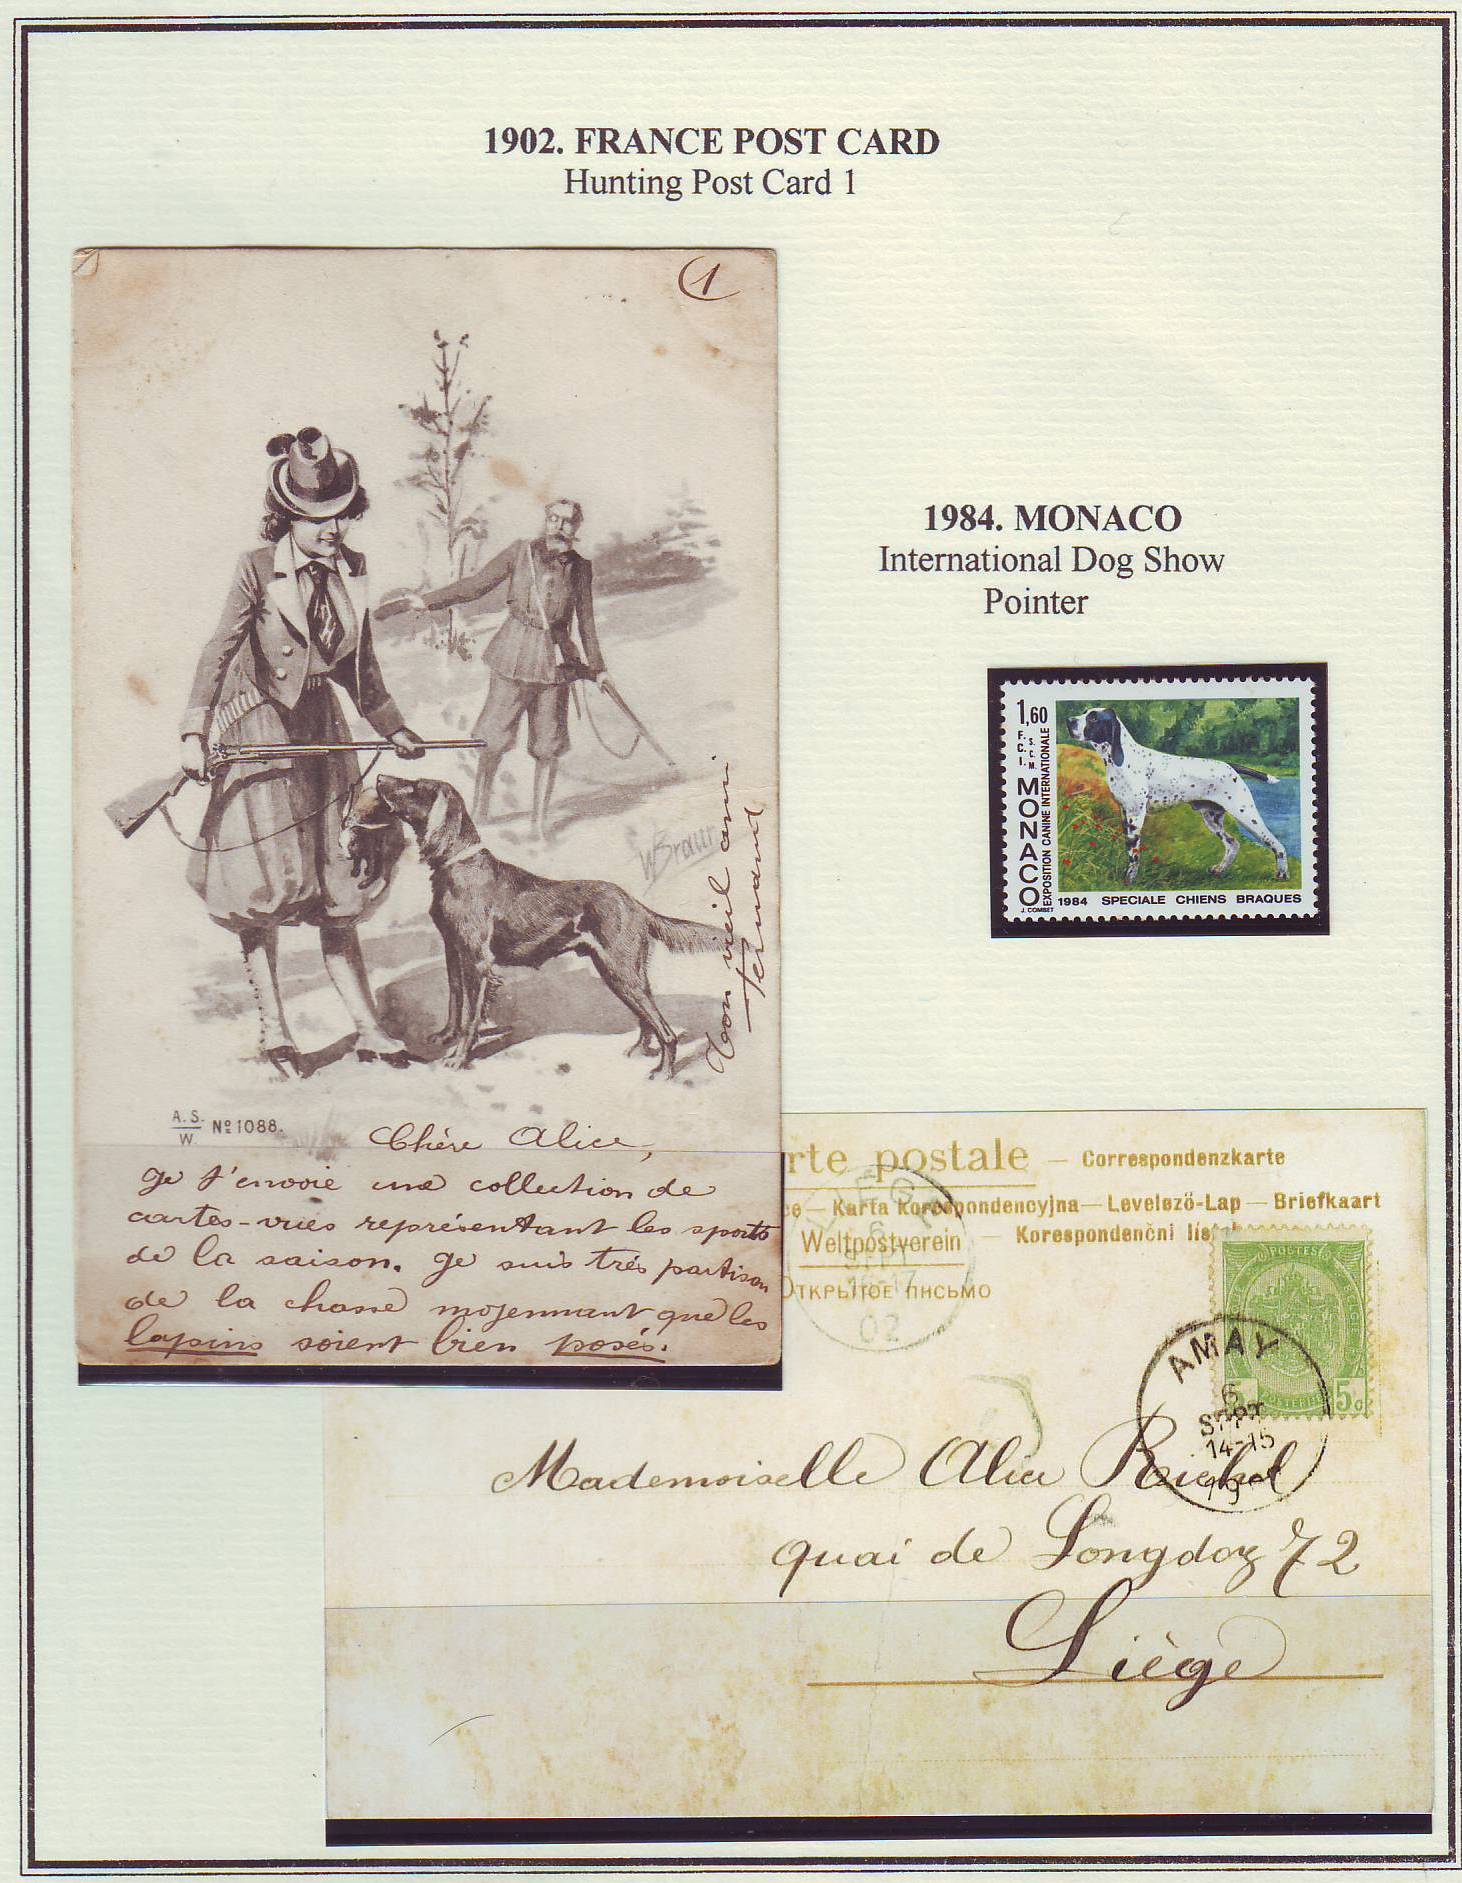 1902. FRANCE POST CARD
Hunting Post Card 1
1
W Braun
Ton vieil ami
Fernand
A. S.
W.
No 1088.
Chère Alice,
Je t'envoie une collection de
cartes-vues représentant les sports
de la saison. Je suis très partisan
de la chasse mojennant que les
lapins soient bien posés.
1984. MONACO
International Dog Show
Pointer
1,60
F. C. I.
S. C. M.
MONACO
EXPOSITION CANINE INTERNATIONALE
J. COMBET
1984 SPECIALE CHIENS BRAQUES
rte postale — Correspondenzkarte
ce — Karta korespondencyjna — Levelező-Lap — Briefkaart
Weltpostverein — Korespondenční lis
Открытое письмо
6
SEPT
16-17
02
POSTES
5 5c
AMAY
6
SEPT
14-15
Mademoiselle Alice
quai de Longdoz 72
Liège